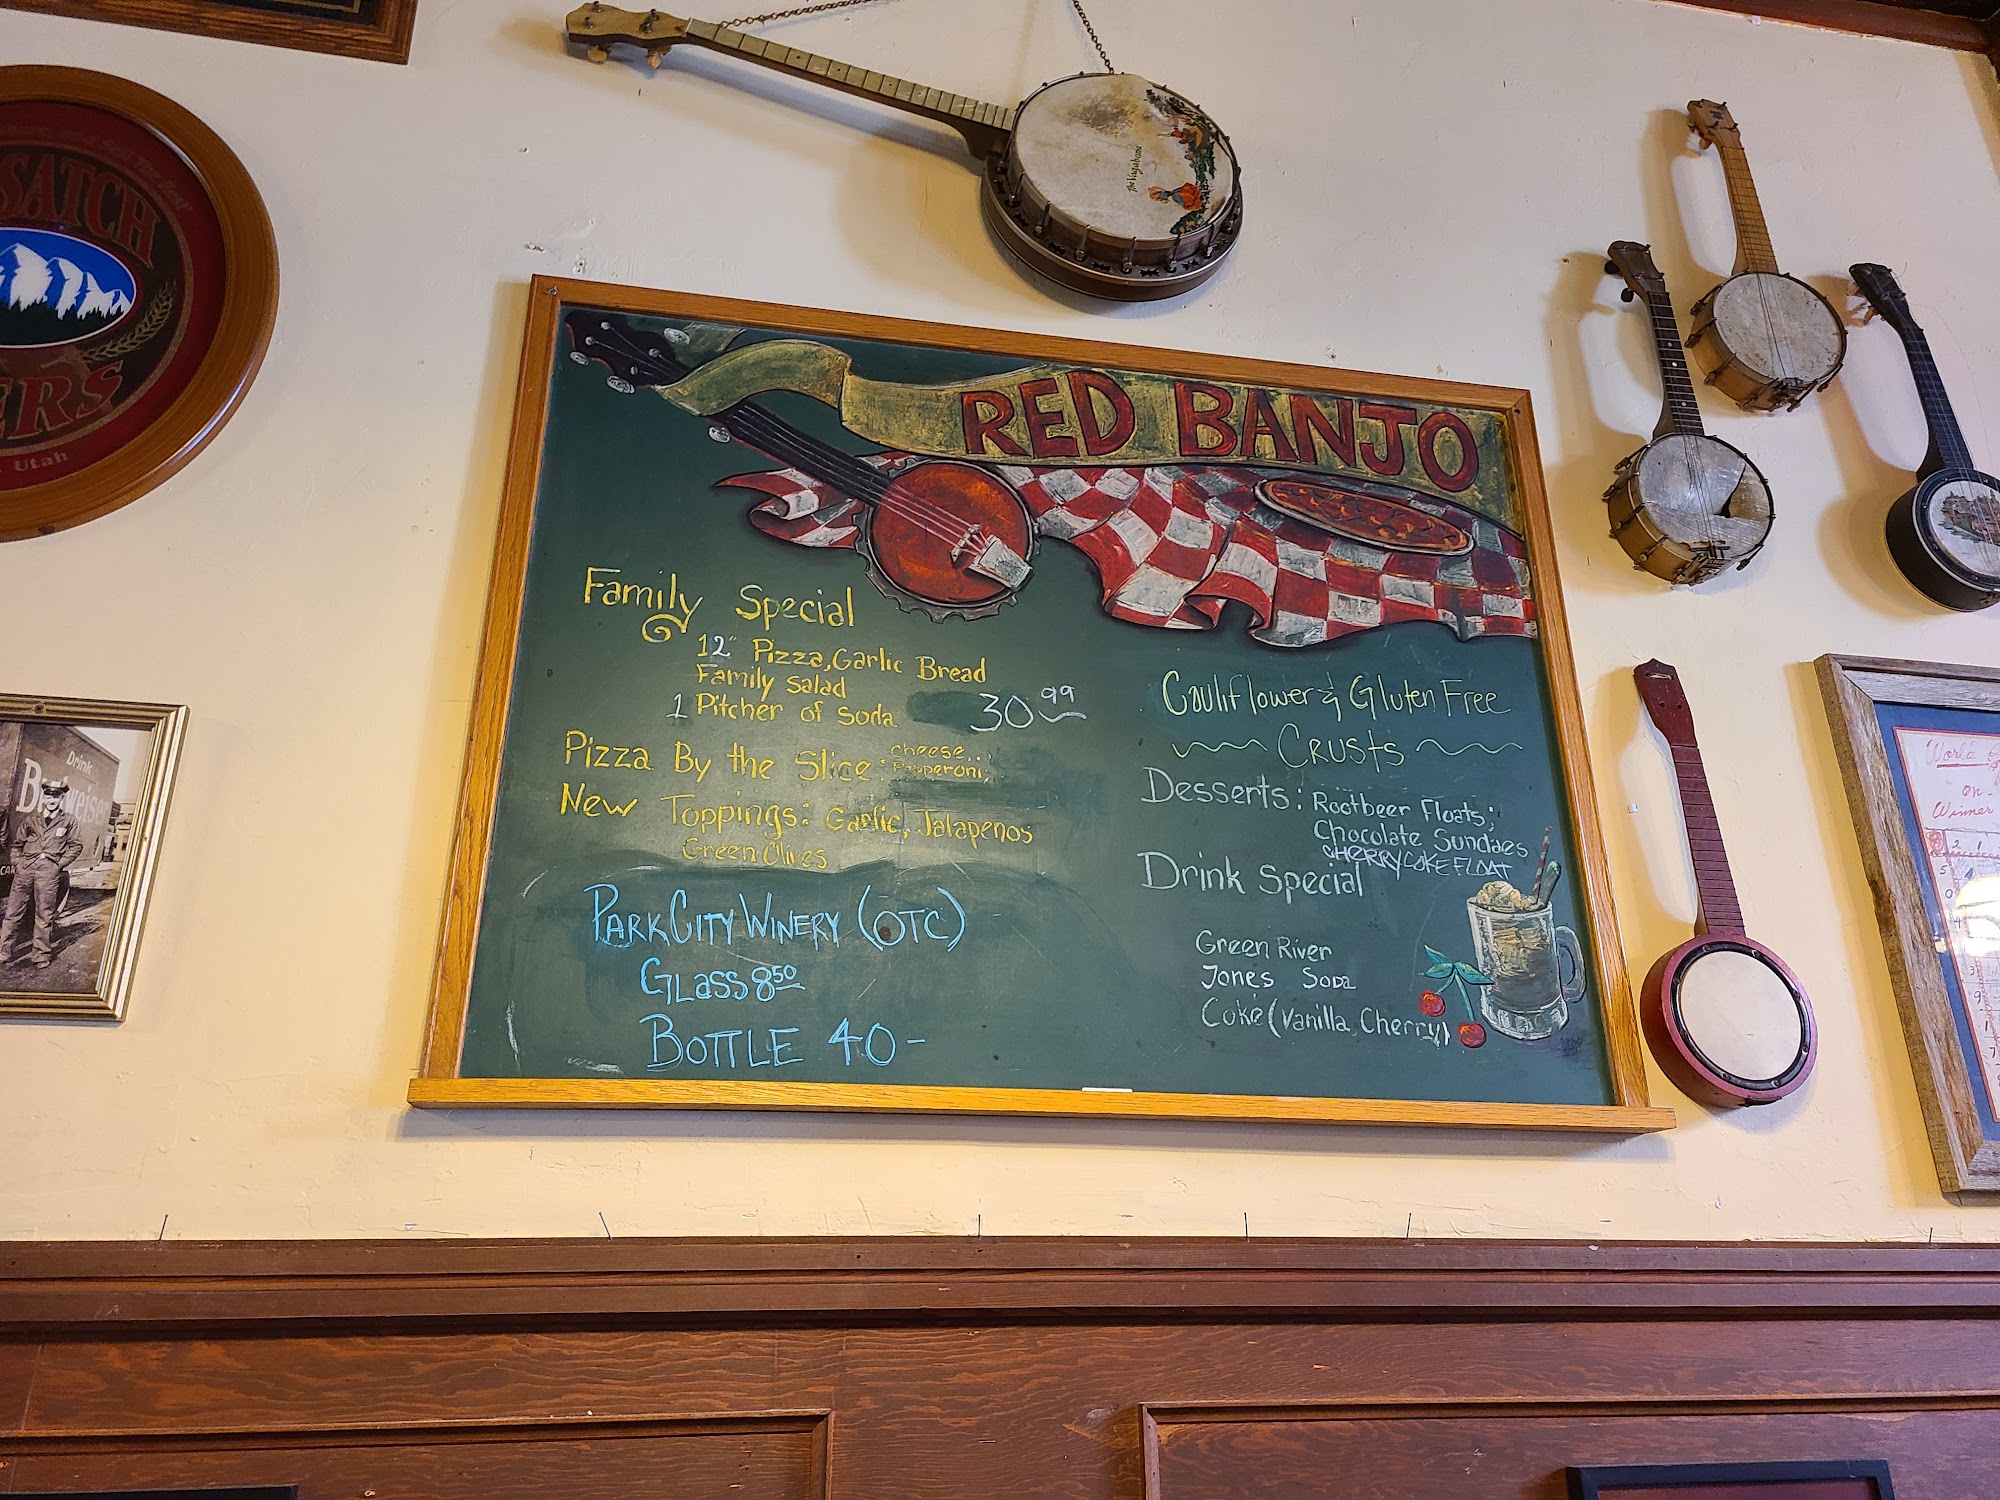 SATCH
ERS
Utah
The Vagabond
RED BANJO
Family Special
12" Pizza, Garlic Bread
Family Salad
1 Pitcher of Soda 30.99
Pizza By the Slice: Cheese,
Pepperoni,
New Toppings: Garlic, Jalapenos
Green Olives
PARK CITY WINERY (OTC)
GLASS 8.50
BOTTLE 40-
Cauliflower & Gluten Free
CRUSTS
Desserts: Rootbeer Floats;
Chocolate Sundaes
CHERRY COKE FLOAT
Drink Special
Green River
Jones Soda
Coke (Vanilla, Cherry)
Drink
World
on
Winner